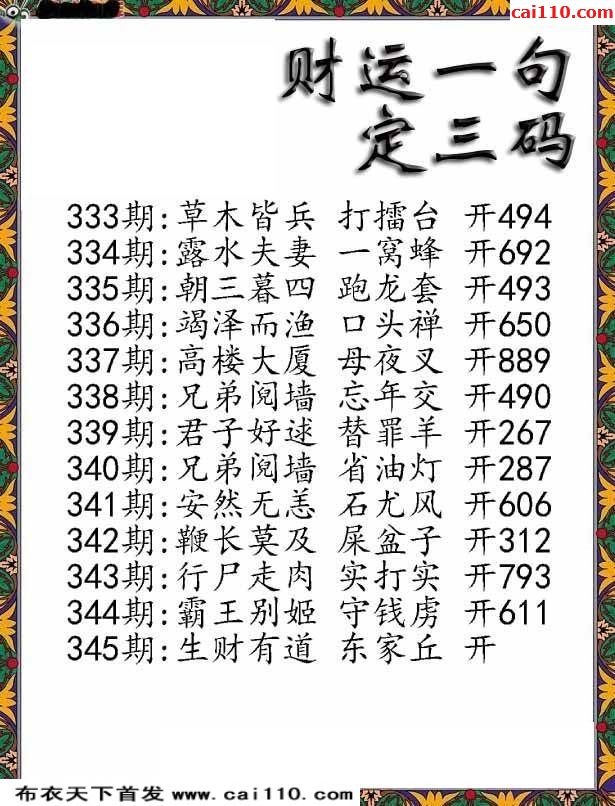 cai110.com
财运一句
定三码
333期:草木皆兵 打擂台 开494
334期:露水夫妻 一窝蜂 开692
335期:朝三暮四 跑龙套 开493
336期:竭泽而渔 口头禅 开650
337期:高楼大厦 母夜叉 开889
338期:兄弟阋墙 忘年交 开490
339期:君子好逑 替罪羊 开267
340期:兄弟阋墙 省油灯 开287
341期:安然无恙 石尤风 开606
342期:鞭长莫及 屎盆子 开312
343期:行尸走肉 实打实 开793
344期:霸王别姬 守钱虏 开611
345期:生财有道 东家丘 开
布衣天下首发 www.cai110.com